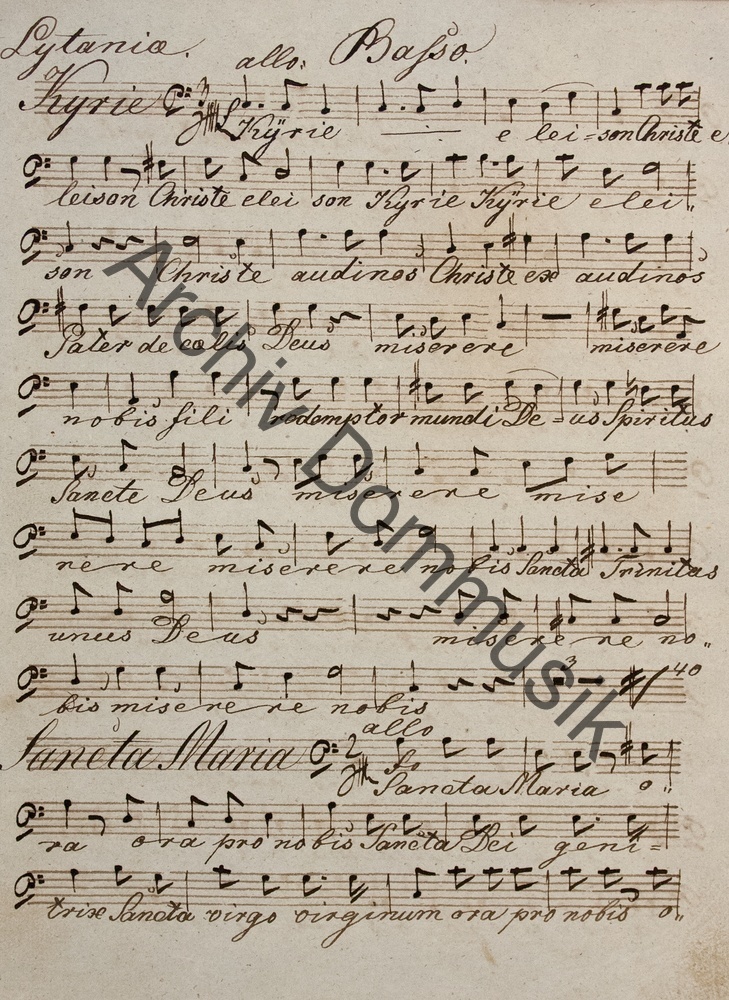 Lytaniæ. allo: Basso.
Kyrie 3
Kÿrie e lei=son Christe e
leison Christe elei son Kyrie Kÿrie elei„
son Christe audinos Christe ex audinos
Pater de cœlis Deus miserere miserere
nobis fili redemptor mundi De=us Spiritus
Sancte Deus miserere mise
rere miserere nobis Sancta Trinitas
unus Deus miserere no„
bis miserere nobis 3 40
allo
Sancta Maria 2 fo
Sancta Maria o„
ra ora pro nobis Sancta Dei geni=
trix Sancta virgo virginum ora pro nobis o„
Archiv Dommusik